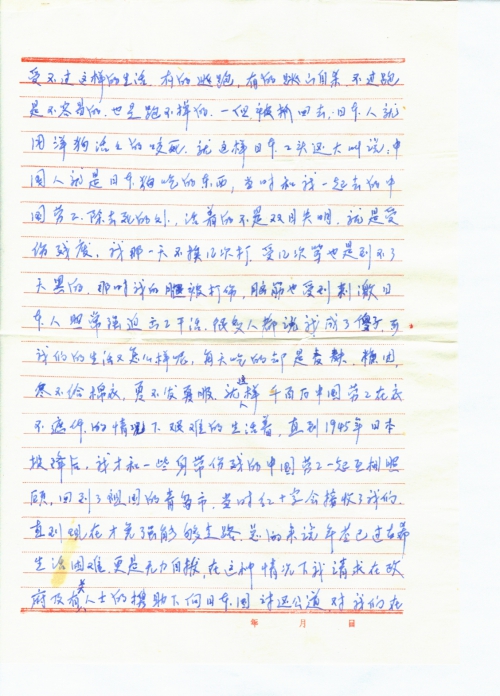 受不过这样的生活，有的逃跑，有的跳山自杀，不过跑
是不容易的，也是跑不掉的，一但被抓回去，日本人就
用洋狗活生生的咬死，就这样日本工头还大叫说：中
国人就是日本狗吃的东西，当时和我一起去的中
国劳工，除去死的外，活着的不是双目失明，就是受
伤残废，我那一天不挨几次打，受几次苦也是到不了
天黑的，那时我的腿被打伤，脑筋也受到刺激日
本人照常强迫去工干活，很多人都说我成了傻子，可
我们的生活又怎么样呢，每天吃的却是
冬不给棉衣，夏不发夏服，就这样千百万中国劳工在衣
不遮体的情况下艰难的生活着，直到1945年日本
投降后，我才和一些身带伤残的中国劳工一起互相照
顾，回到了祖国的青岛市，当时红十字会接收了我们，
直到现在才免强能够走路，总的来说年老已过古稀
生活困难，更是无力自拔，在这种情况下我请求在政
府及有关人士的援助下向日本国讨还公道，对我们在
年 月 日